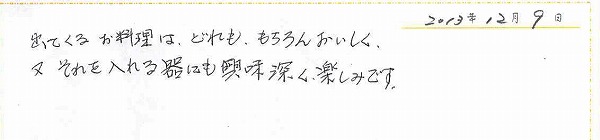 2013年12月9日
出てくるお料理は、どれも、もちろんおいしく、
又それを入れる器にも興味深く、楽しみです。